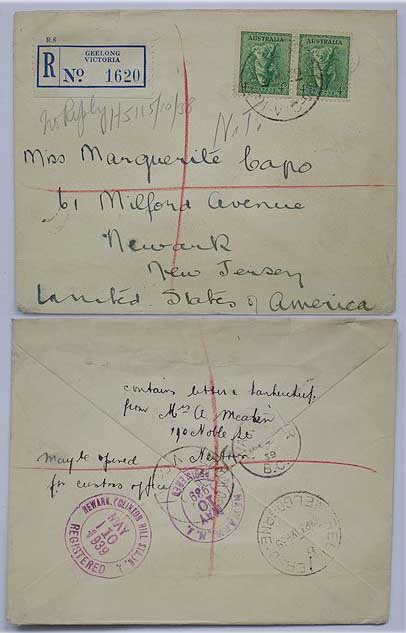 R.6
GEELONG
VICTORIA
R No 1620
AUSTRALIA AUSTRALIA
4D 4D
No Reply
N.T.
Miss Marguerite Capo
61 Milford Avenue
Newark
New Jersey
United States of America
contains letter &
from Mrs A
190 Noble St
Newtown
May be opened
for customs office
NEWARK, (CLINTON HILL STA.) N. J.
MAY
10
1939
REGISTERED
NEWARK, N. J.
MAY
10
1939
REGISTERED
MELBOURNE